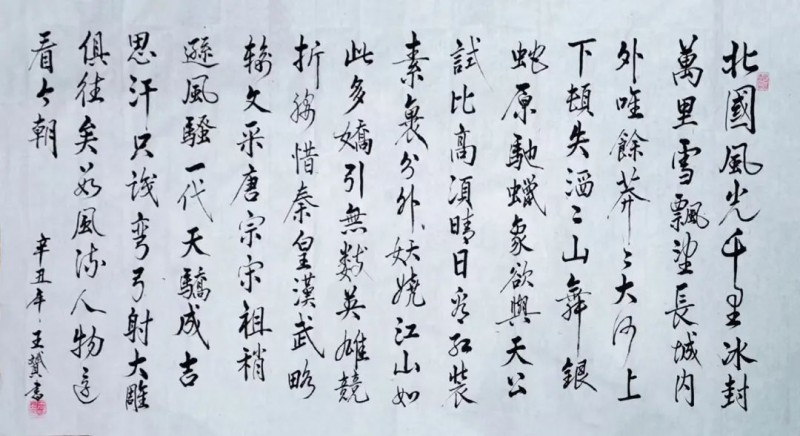 北國風光千里冰封
萬里雪飄望長城内
外唯餘莽〻大河上
下頓失滔〻山舞銀
蛇原馳蠟象欲與天公
試比高須晴日看紅裝
素裹分外妖嬈江山如
此多嬌引無數英雄競
折腰惜秦皇漢武略
輸文采唐宗宋祖稍
遜風騷一代天驕成吉
思汗只識彎弓射大雕
俱往矣數風流人物還
看今朝
辛丑年王書